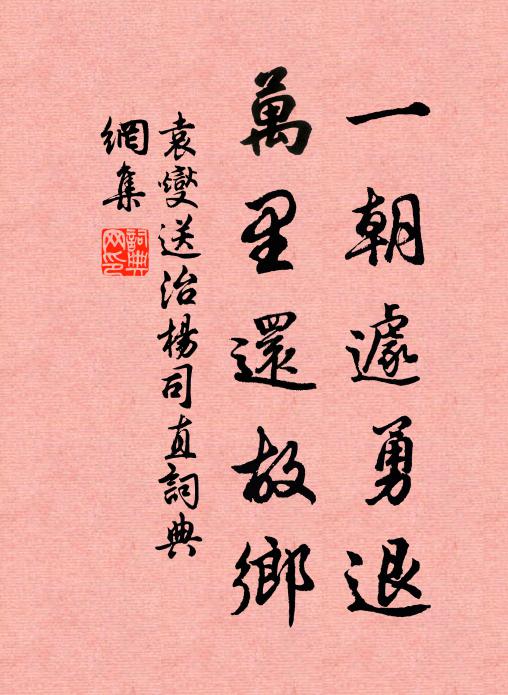 一朝遽勇退
萬里還故鄉
袁燮送治楊司直詞典
網集
詞典網印